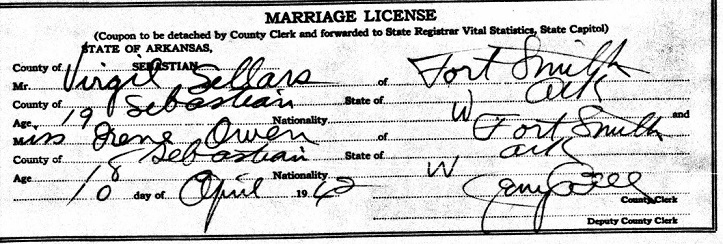 MARRIAGE LICENSE
(Coupon to be detached by County Clerk and forwarded to State Registrar Vital Statistics, State Capitol)
STATE OF ARKANSAS,
County of SEBASTIAN
Mr. Virgil Sellars of Fort Smith
County of Sebastian State of Ark
Age 19 Nationality W and
Miss Irene Owen of Fort Smith
County of Sebastian State of Ark
Age 18 Nationality W
10 day of April 19
County Clerk
Deputy County Clerk